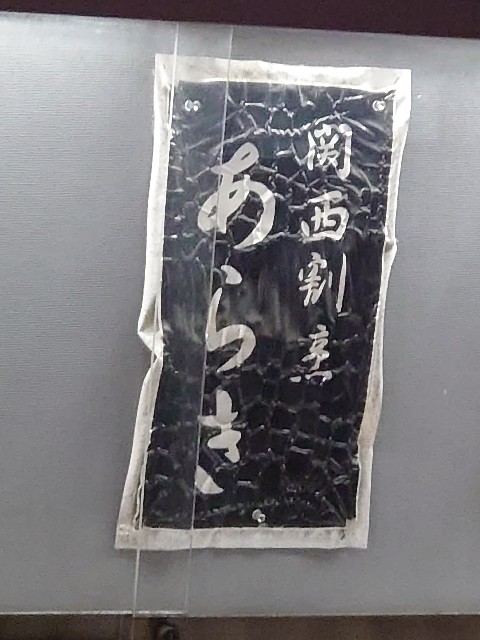 関西割烹
あらき